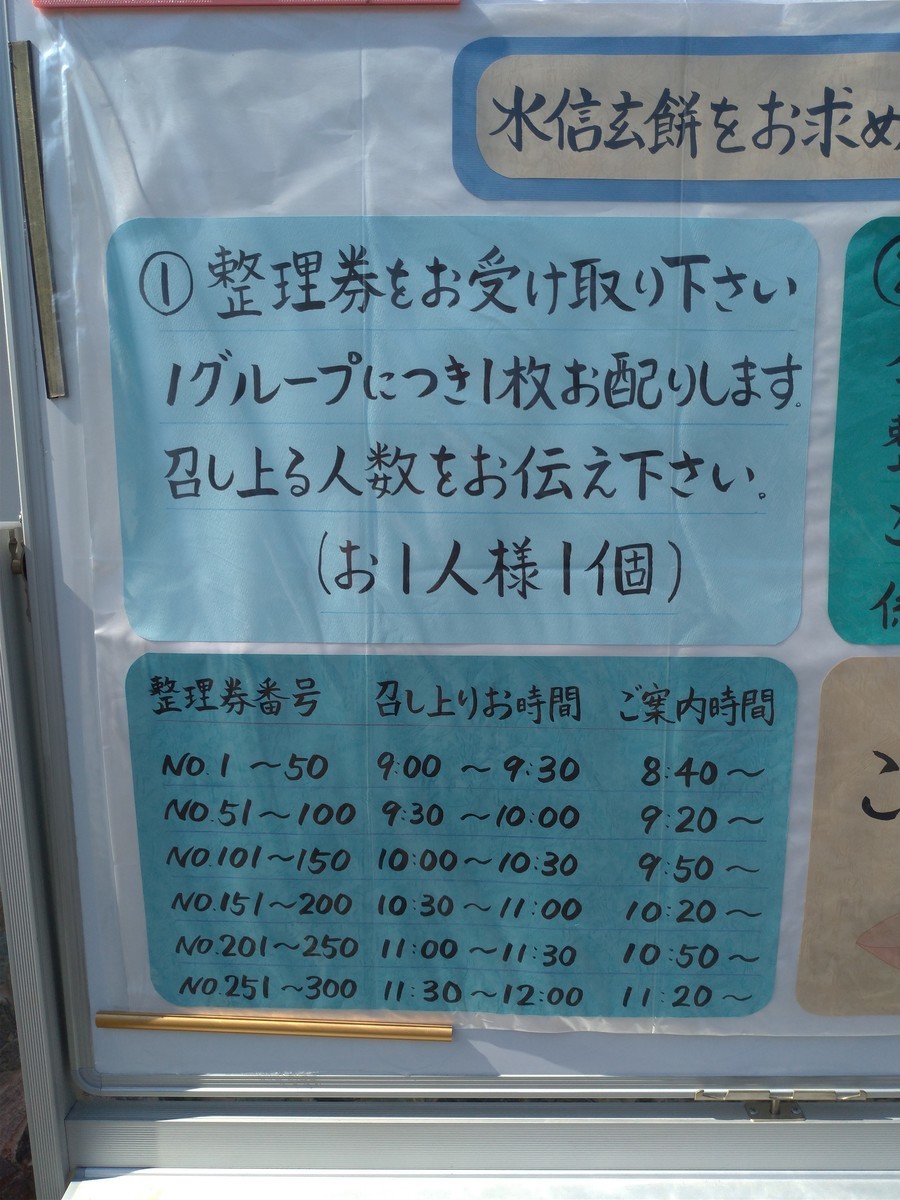 水信玄餅をお求め
① 整理券をお受け取り下さい
1グループにつき1枚お配りします。
召し上る人数をお伝え下さい。
(お1人様1個)
整理券番号 召し上りお時間 ご案内時間
NO.1 ～50 9:00 ～ 9:30 8:40～
NO.51～100 9:30 ～10:00 9:20～
NO.101～150 10:00～10:30 9:50～
NO.151～200 10:30～11:00 10:20～
NO.201～250 11:00～11:30 10:50～
NO.251～300 11:30～12:00 11:20～